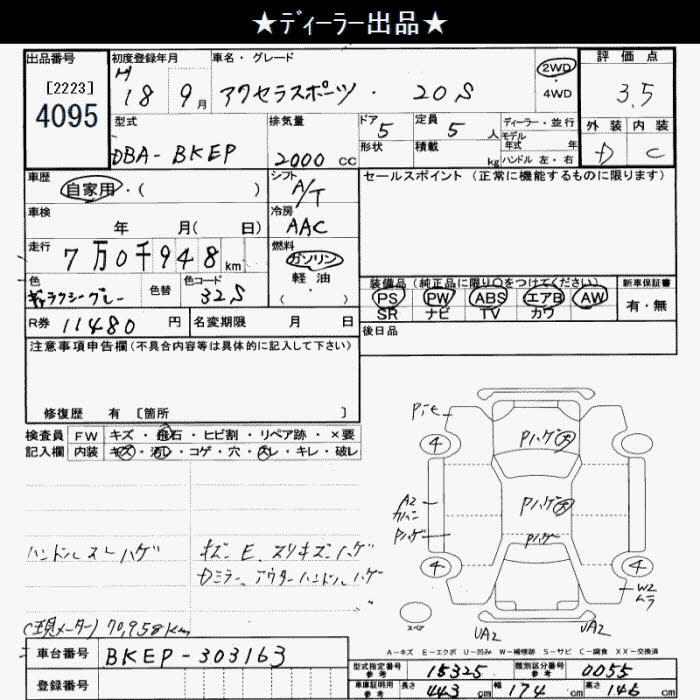 ★ディーラー出品★
出品番号
[2223]
4095
初度登録年月
H
18 9月
車名・グレード
アクセラスポーツ・ 20S
2WD
・
4WD
評価点
3.5
外装 内装
D C
型式
DBA-BKEP
排気量
2000 cc
ドア 5
形状
定員 5 人
積載 kg
ディーラー・並行
モデル
年式 年
ハンドル 左・右
車歴
自家用・( )
シフト
A/T
車検
年 月( 日)
冷房
AAC
走行
7万0千948km
燃料
ガソリン
・
軽油
( )
色
ギャラクシーグレー
色替
色コード
32S
R券 11480 円
名変期限 月 日
セールスポイント(正常に機能するものに限ります)
装備品(純正品に限り○をつけてください)
PS PW ABS エアB AW
SR ナビ TV カワ
新車保証書
有・無
後日品
注意事項申告欄(不具合内容等は具体的に記入して下さい)
修復歴 有 [箇所 ]
検査員
記入欄
FW キズ・飛石・ヒビ割・リペア跡・×要
内装 キズ・汚レ・コゲ・穴・スレ・キレ・破レ
ハンドルスレハゲ
キズ、E、スリキズ、ハゲ
Dミラー、アウターハンドルハゲ
(現メーター) 70,958km
車台番号 BKEP-303163
登録番号
Pハゲ
4 4
Pハゲ
Pハゲ
A2
Pハゲ
4 4
W2
ムラ
スペア
UA2 UA2
A-キズ E-エクボ U-凹み W-補修跡 S-サビ C-腐食 XX-交換済
型式指定番号
参考
15325
類別区分番号
参考
0055
車庫証明用
参考
長さ 443 cm 幅 174 cm 高さ 146 cm